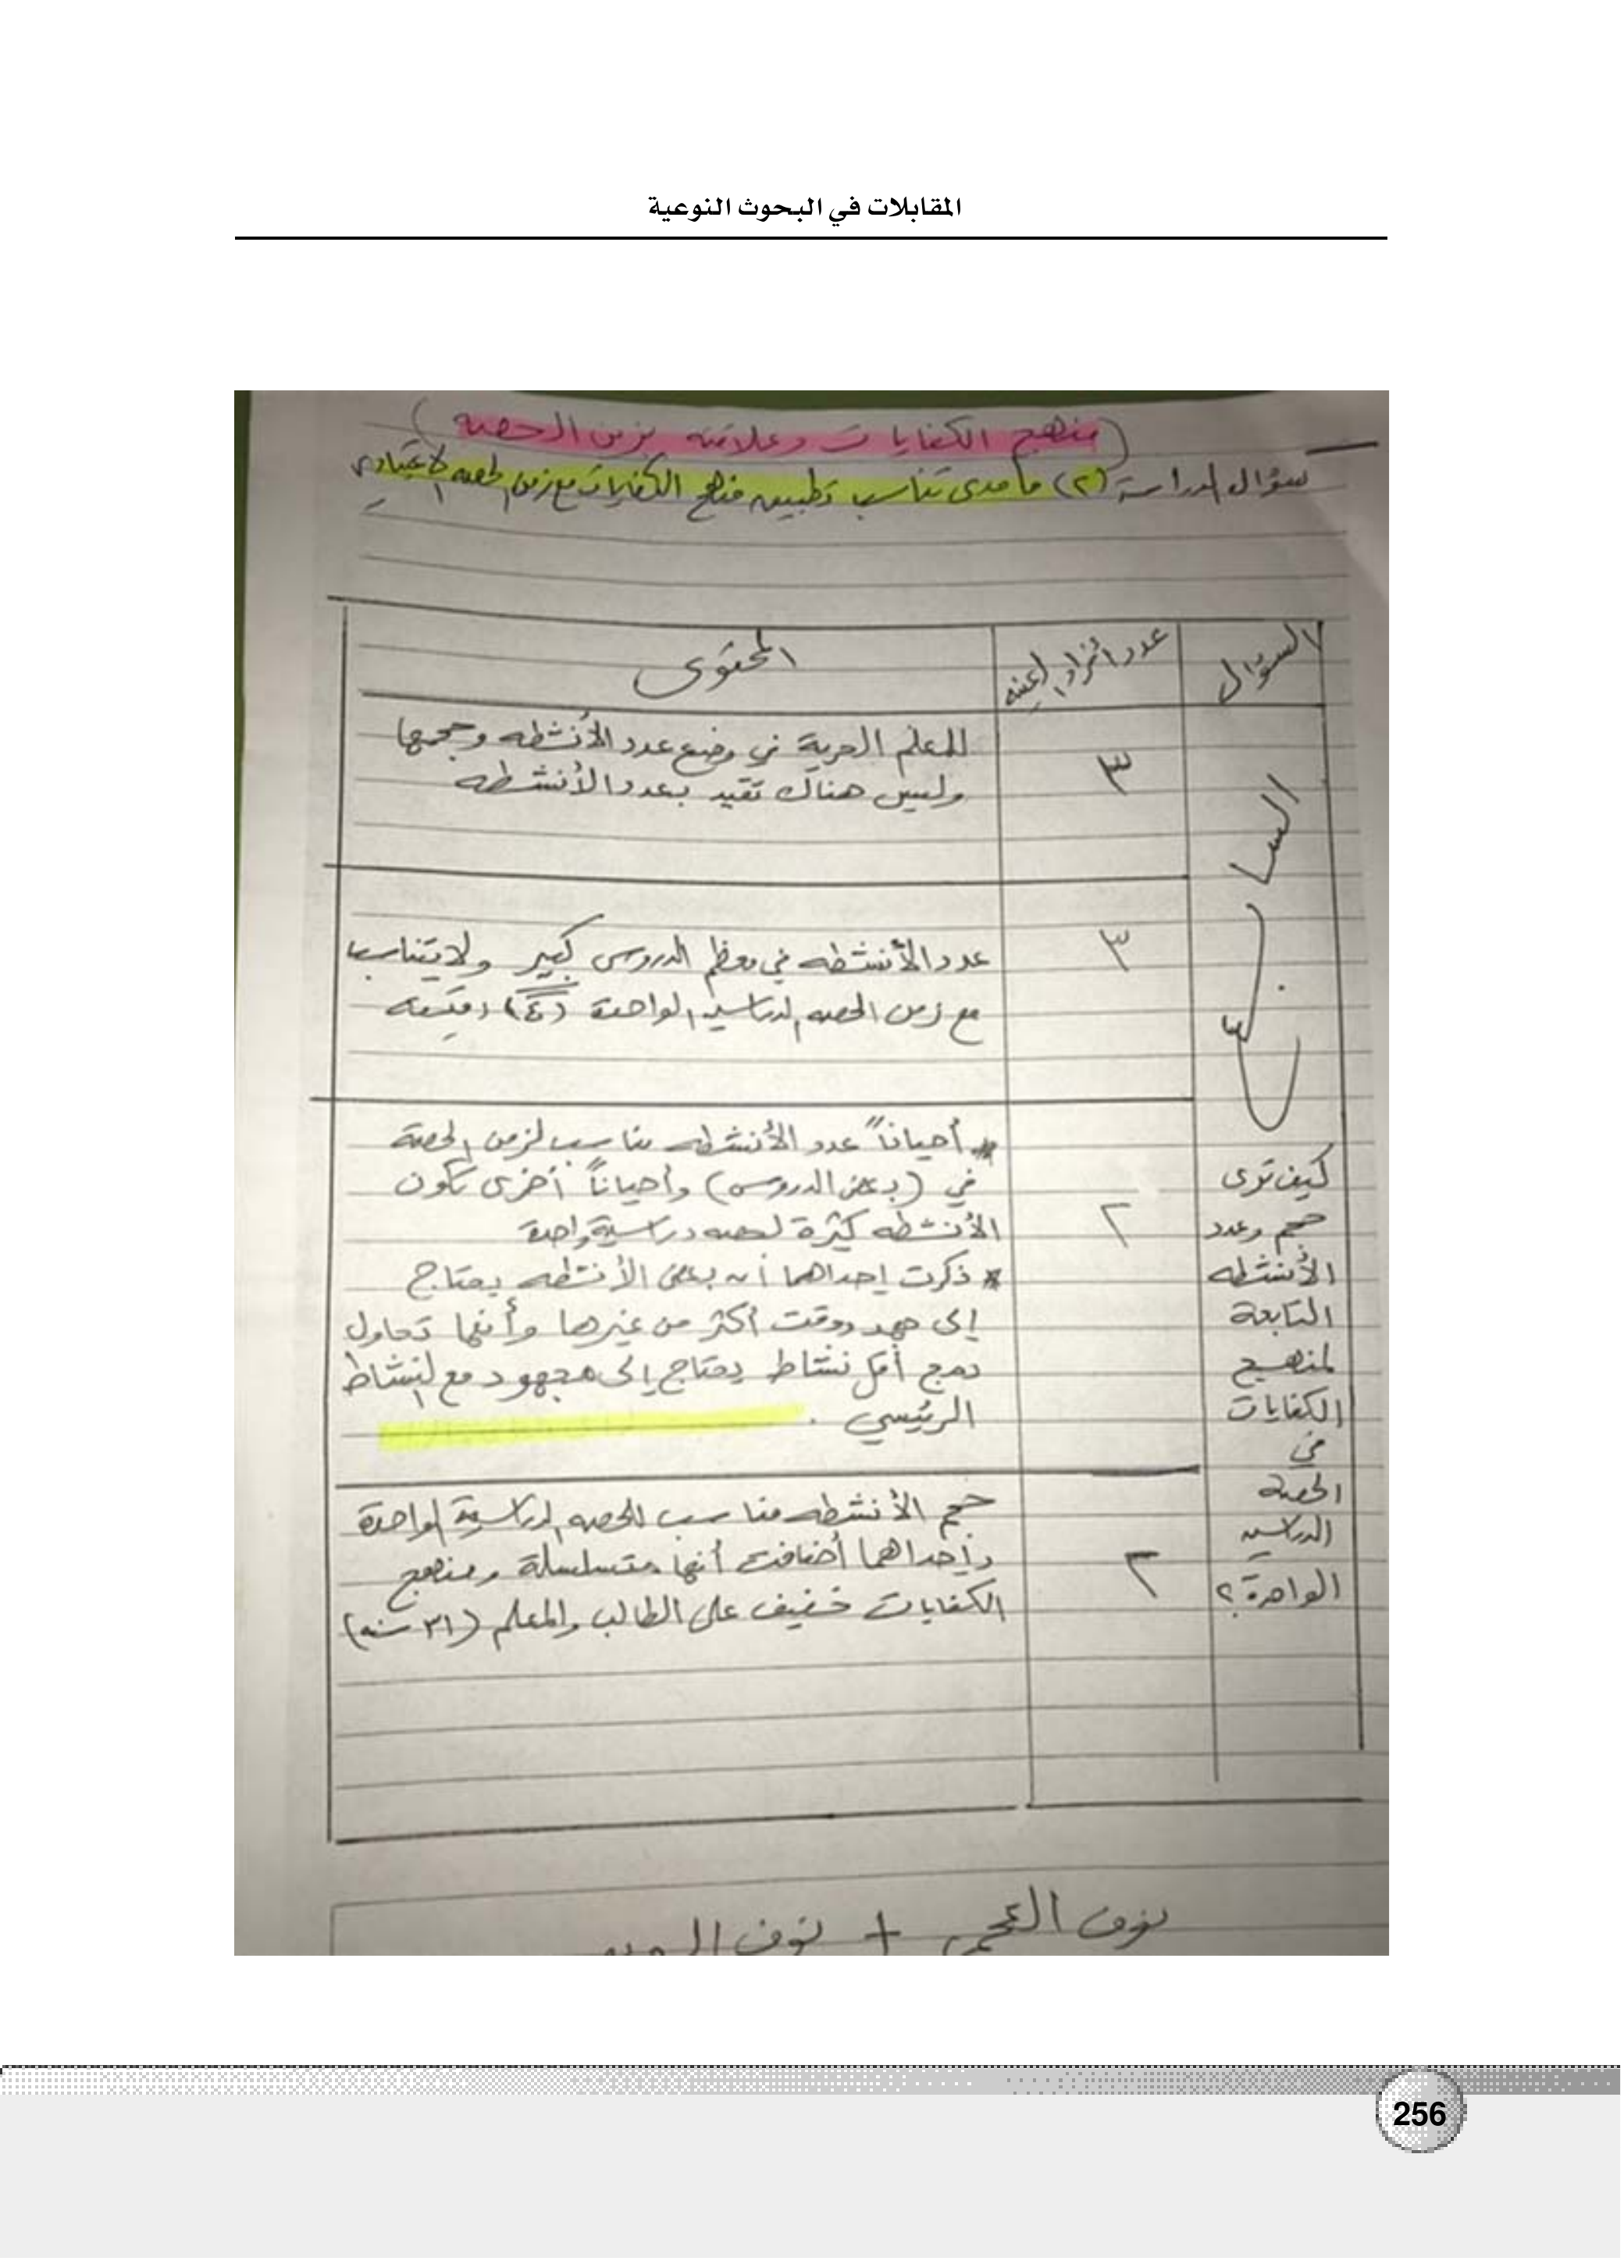 المقابلات في البحوث النوعية
(منهج الكفايات وعلاقته بزمن الحصه)
سؤال الدراسة (٢) ما مدى تناسب تطبيق منهج الكفايات مع زمن الحصه الاعتيادي
السؤال
عدد أفراد العينه
المحتوى
السابع
كيف ترى
حجم وعدد
الأنشطه
التابعة
لمنهج
الكفايات
في
الحصة
الدراسيه
الواحدة؟
٣
للمعلم الحرية في وضع عدد الأنشطه وحجمها
وليس هناك تقيد بعدد الأنشطه
٣
عدد الأنشطه في معظم الدروس كبير ولا يتناسب
مع زمن الحصه الدراسيه الواحدة (٤٠) دقيقه
٢
* أحياناً عدد الأنشطه مناسب لزمن الحصة
في (بعض الدروس) وأحياناً أخرى تكون
الأنشطه كثيرة لحصه دراسية واحدة
* ذكرت احداهما أن بعض الأنشطه يحتاج
إلى جهد ووقت أكثر من غيرها وأنها تحاول
دمج أقل نشاط يحتاج إلى مجهود مع النشاط
الرئيسي .
٢
حجم الأنشطه مناسب للحصه الدراسية الواحدة
واحداهما أضافت أنها متسلسلة ومنهج
الكفايات خفيف على الطالب والمعلم (٣١ سنه)
نوف العجمي + نوف
256